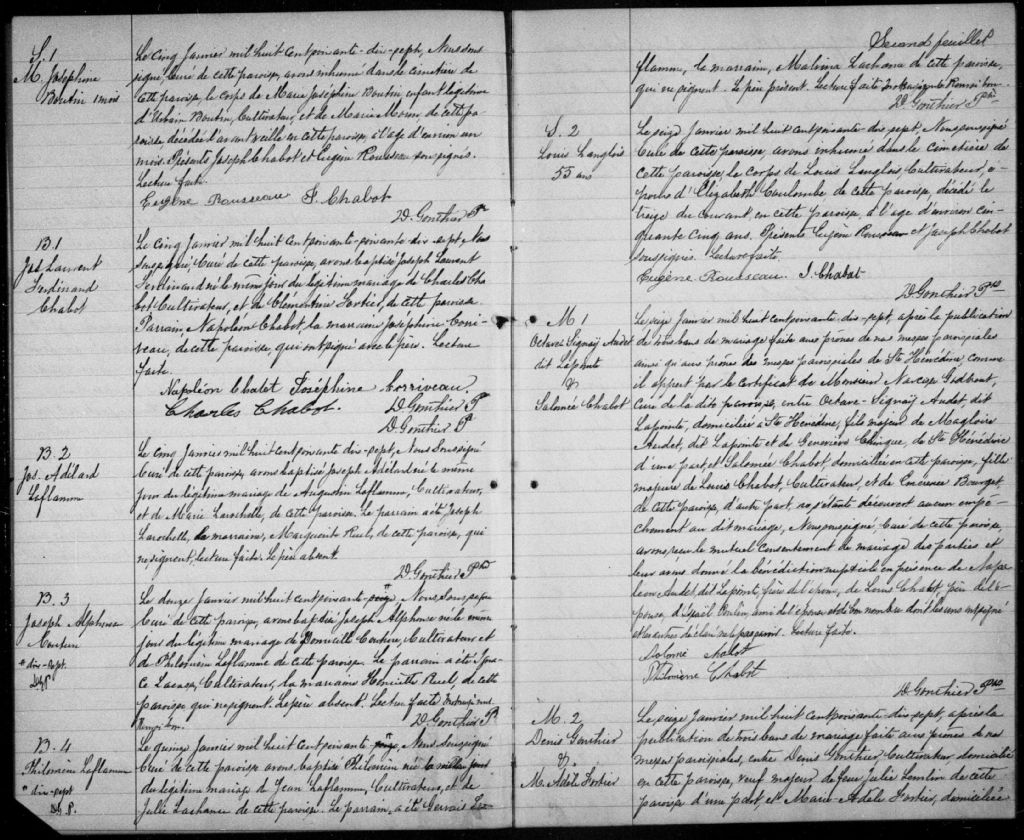 S. 1
M. Joséphine
Boutin 1 mois
Le cinq Janvier mil huit cent soixante-dix-sept, Nous sous
signé, Curé de cette paroisse, avons inhumé dans le cimetière de
cette paroisse, le corps de Marie Joséphine Boutin, enfant légitime
d'Urbain Boutin, Cultivateur, et de Marie Morin, de cette pa
roisse, décédée l'avant veille en cette paroisse, à l'âge d'environ un
mois. Présents Joseph Chabot et Eugène Rousseau soussignés.
Lecture faite.
Eugène Rousseau J. Chabot
D. Gonthier P
B. 1
Jos. Laurent
Ferdinand
Chabot
Le cinq Janvier mil huit cent soixante dix-sept Nous
soussigné, Curé de cette paroisse, avons baptisé Joseph Laurent
Ferdinand né le même jour du légitime mariage de Charles Cha
bot Cultivateur, et de Clémentine Fortier, de cette paroisse.
Parrain, Napoléon Chabot, la marraine Joséphine Corri-
veau, de cette paroisse, qui ont signé avec le père. Lecture
faite.
Napoléon Chabot Joséphine Corriveau
Charles Chabot. D. Gonthier P
D. Gonthier P
B. 2
Jos. Adélard
Laflamme
Le cinq Janvier mil huit cent soixante dix-sept, Nous Soussigné
Curé de cette paroisse, avons baptisé Joseph Adélard né le même
jour du légitime mariage de Augustin Laflamme, Cultivateur,
et de Marie Larochelle, de cette paroisse. Le parrain a été Joseph
Larochelle, la marraine, Marguerite Ruel, de cette paroisse, qui
ne signent, lecture faite. Le père absent.
D. Gonthier Ptre
B. 3
Joseph Alphonse
Couture
* dix-sept.
D.G.P.
Le douze Janvier mil huit cent soixante- Nous Soussigné
Curé de cette paroisse, avons baptisé Joseph Alphonse né le même
jour du légitime mariage de Couture, Cultivateur et
de Philomène Laflamme de cette paroisse. Le parrain a été Igna-
ce Cultivateur, la marraine Henriette Ruel, de cette
paroisse qui ne signent. Le père absent. Lecture faite
D. Gonthier P.
B. 4
Philomène Laflamme
* dix-sept
D.G.P.
Le quinze Janvier mil huit cent soixante Nous Soussigné
Curé de cette paroisse avons baptisé Philomène née
du légitime mariage de Jean Laflamme, Cultivateur, et de
Julie Lachance de cette paroisse. Le parrain, a été Gervais La-
Second feuillet
flamme, la marraine, Malvina Lachance de cette paroisse,
qui ne signent. Le père présent. Lecture faite
D. Gonthier Ptre
S. 2
Louis Langlois
55 ans
Le seize Janvier mil huit cent soixante-dix sept, Nous soussigné
Curé de cette paroisse, avons inhumé dans le cimetière de
cette paroisse, le corps de Louis Langlois, Cultivateur, é-
poux d'Elizabeth Coulombe de cette paroisse, décédé le
treize du courant, en cette paroisse, à l'âge d'environ cin-
quante cinq ans. Présents Eugène Rousseau et Joseph Chabot
soussignés. Lecture faite.
Eugène Rousseau. J. Chabot
D. Gonthier Ptre
M 1
Octave Signaij Audet
dit Lapointe
&
Salomée Chabot
Le seize Janvier mil huit cent soixante-dix-sept, après la publication
de trois bans de mariage faite aux prônes de nos messes paroissiales
ainsi qu'aux prônes des messes paroissiales de Ste Hénédine comme
il appert par le certificat de Monsieur Narcisse Godbout,
Curé de la dite paroisse, entre Octave-Signaij Audet, dit
Lapointe, domicilié à Ste Hénédine, fils majeur de Magloire
Audet, dit Lapointe et de Geneviève Chiasson, de Ste Hénédine
d'une part, et Salomée Chabot, domiciliée en cette paroisse, fille
majeure de Louis Chabot, Cultivateur, et de Bourget
de cette paroisse, d'autre part, ne s'étant découvert aucun empê-
chement au dit mariage, Nous soussigné, Curé de cette paroisse,
avons reçu le mutuel consentement de mariage des parties et
leur avons donné la bénédiction nuptiale en présence de Napo
léon Audet, dit Lapointe, frère de l'époux, de Louis Chabot, père de l'é-
pouse, ami de l'époux et d'un nombre dont les uns ont signé
et les autres déclaré ne le pas savoir. Lecture faite.
Salomé Chabot
Philomène Chabot
D. Gonthier Ptre
M. 2
Denis Gonthier
&
M. Adèle Fortier
Le seize Janvier mil huit cent soixante dix sept, après la
publication de trois bans de mariage faite aux prônes de nos
messes paroissiales, entre Denis Gonthier, Cultivateur, domicilié
en cette paroisse, veuf majeur de feue Julie Lemelin de cette
paroisse d'une part, et Marie-Adèle Fortier, domiciliée